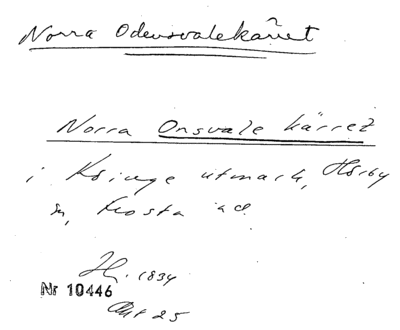 Norra Odensvalekärret
Norra Onsvale kärret
i Ksinge utmark, Hörby
sn, Frosta hd
Hi. 1834
Nr 10446
Akt 25